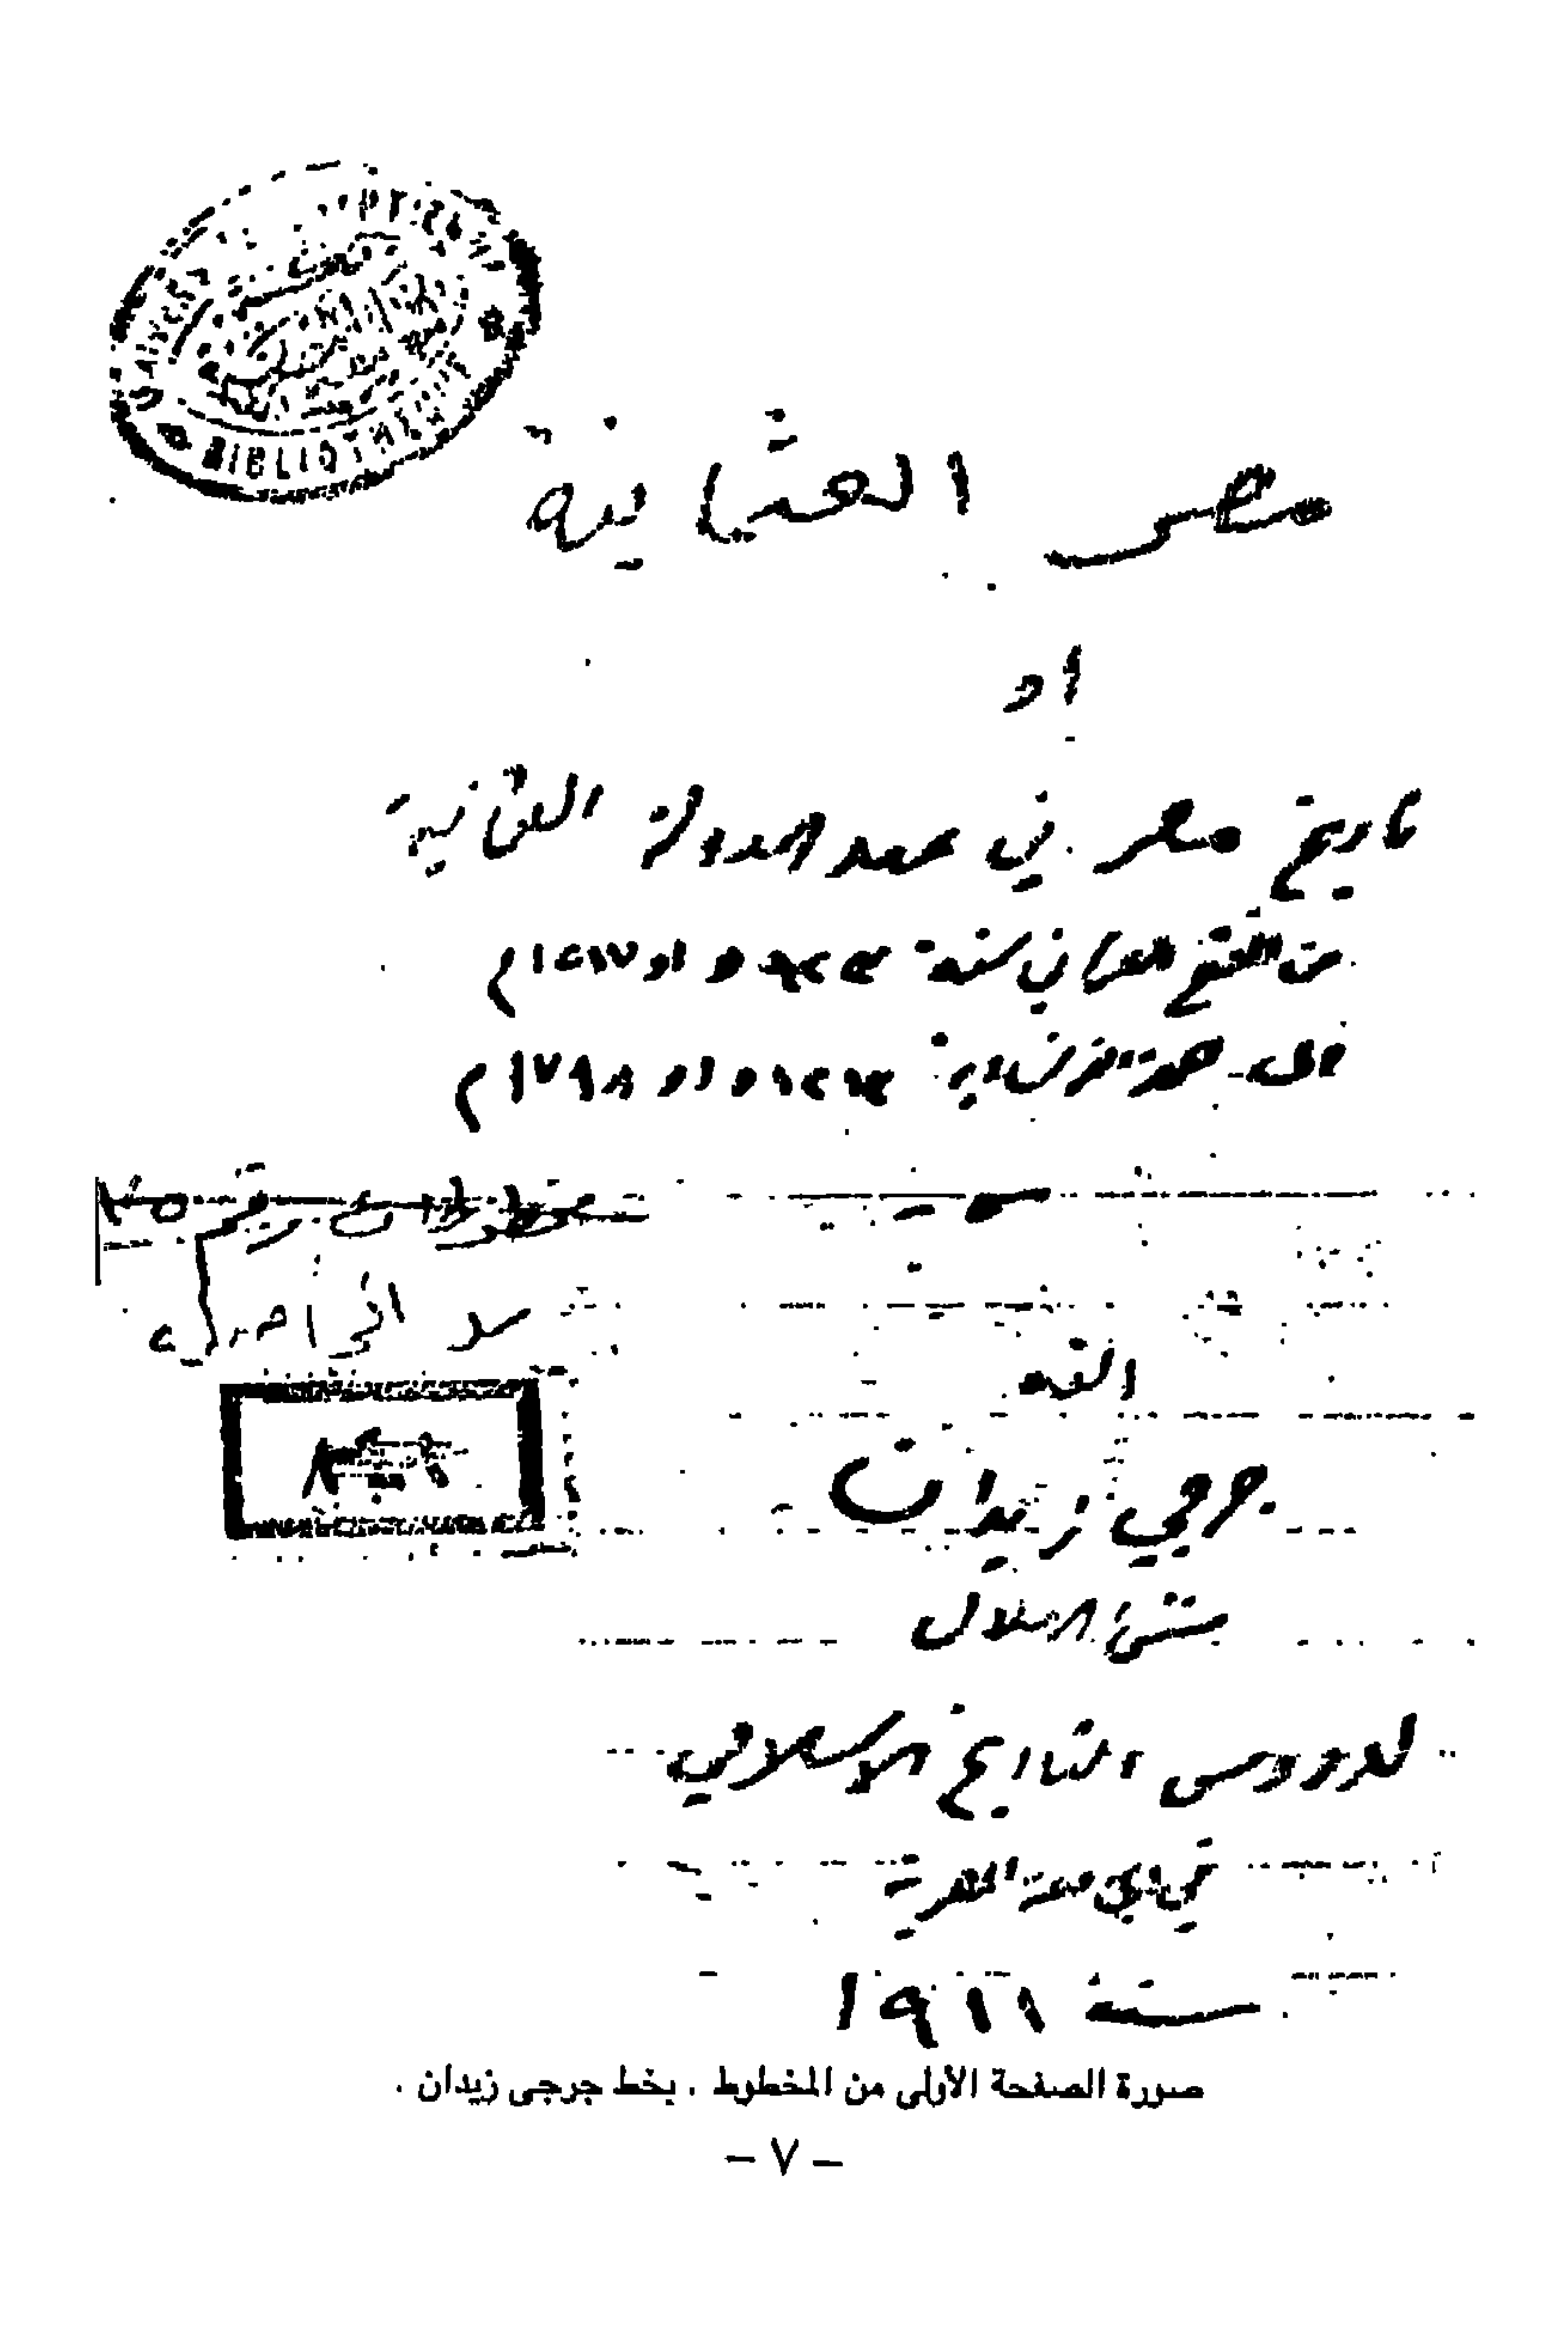 BIBLIOTHEQUE
مصر العثمانية
او
تاريخ مصر في عهد الدولة العثمانية
من الفتح العثماني سنة ٩٢٣ ه او ١٥١٧ م
الى الحملة الفرنساوية ١٢١٣ ه او ١٧٩٨ م
مخطوطات رقم
الفه
جرجي زيدان
منشئ الهلال
لدروس التاريخ الاسلامي
في الجامعة المصرية
سنة ١٩١١
صورة الصفحة الأولى من المخطوط . بخط جرجى زيدان .
– ٧ –